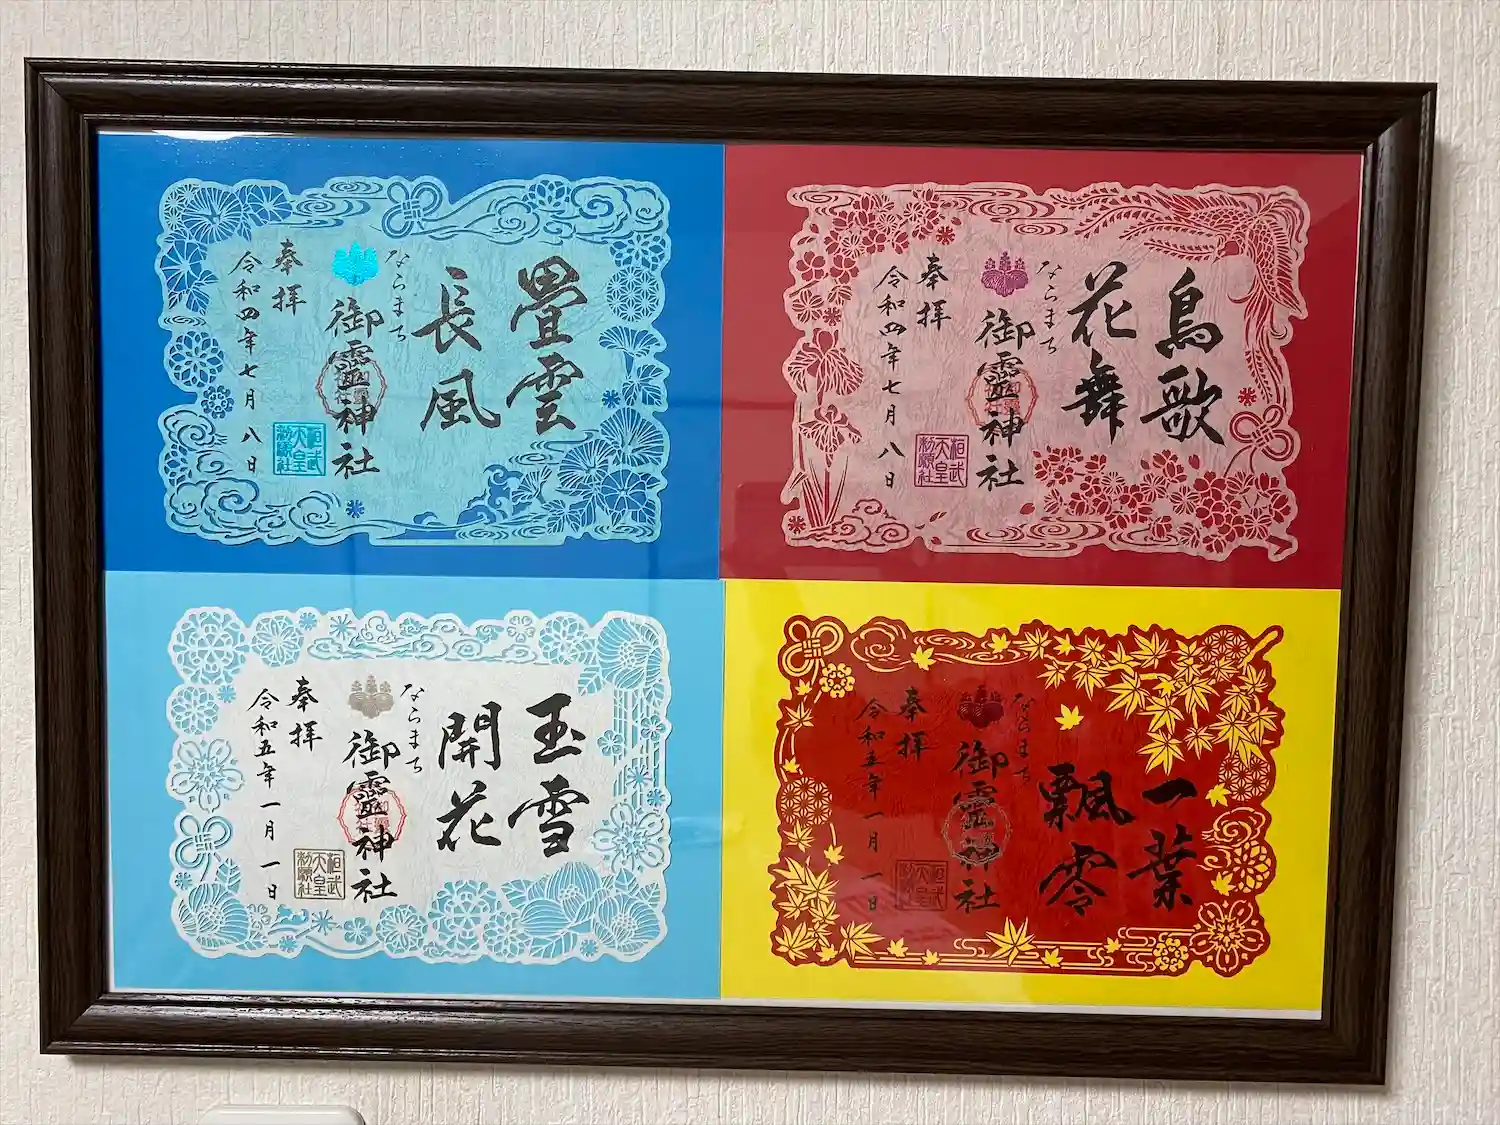 畳雲
長風
ならまち
御霊神社
奉拝
令和四年七月八日
桓武
天皇
勅願社
鳥歌
花舞
ならまち
御霊神社
奉拝
令和四年七月八日
桓武
天皇
勅願社
玉雪
開花
ならまち
御霊神社
奉拝
令和五年一月一日
桓武
天皇
勅願社
一葉
飄零
ならまち
御霊神社
奉拝
令和五年一月一日
桓武
天皇
勅願社